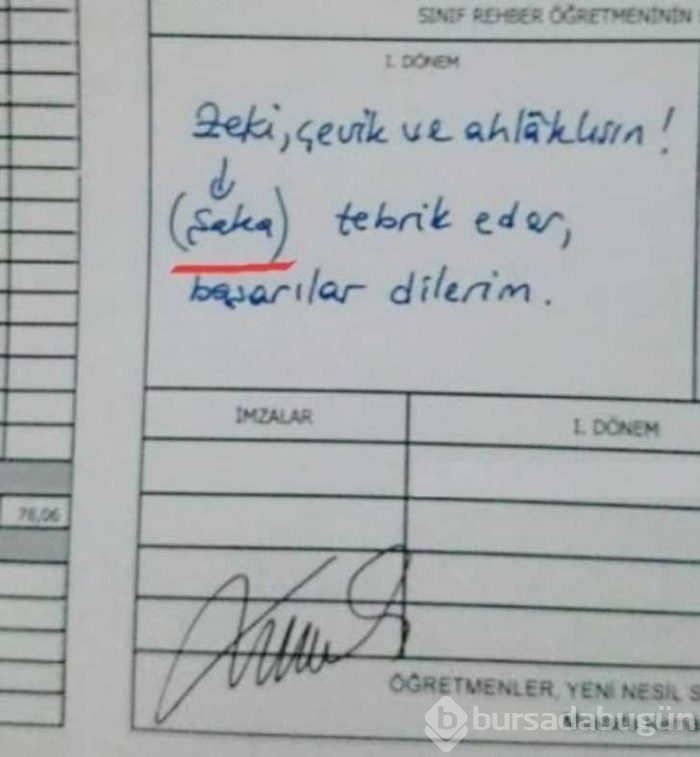 SINIF REHBER ÖĞRETMENİNİN
I. DÖNEM
Zeki, çevik ve ahlâklısın!
(Şaka) tebrik eder,
başarılar dilerim.
İMZALAR
I. DÖNEM
78,06
ÖĞRETMENLER, YENİ NESİL S
b bursadabugün